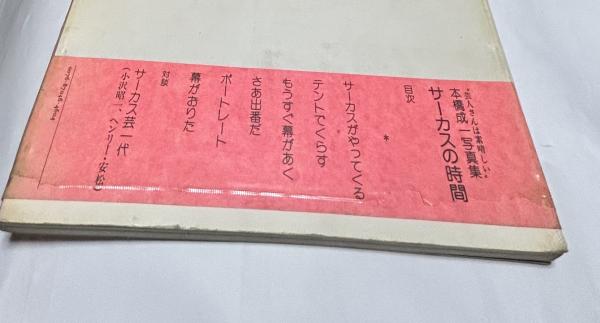 "芸人さんは素晴しい"
本橋成一写真集
サーカスの時間
目次
*
サーカスがやってくる
テントでくらす
もうすぐ幕があく
さあ出番だ
ポートレート
幕がおりた
対談
サーカス芸一代
(小沢昭一、ヘンリー・安松)